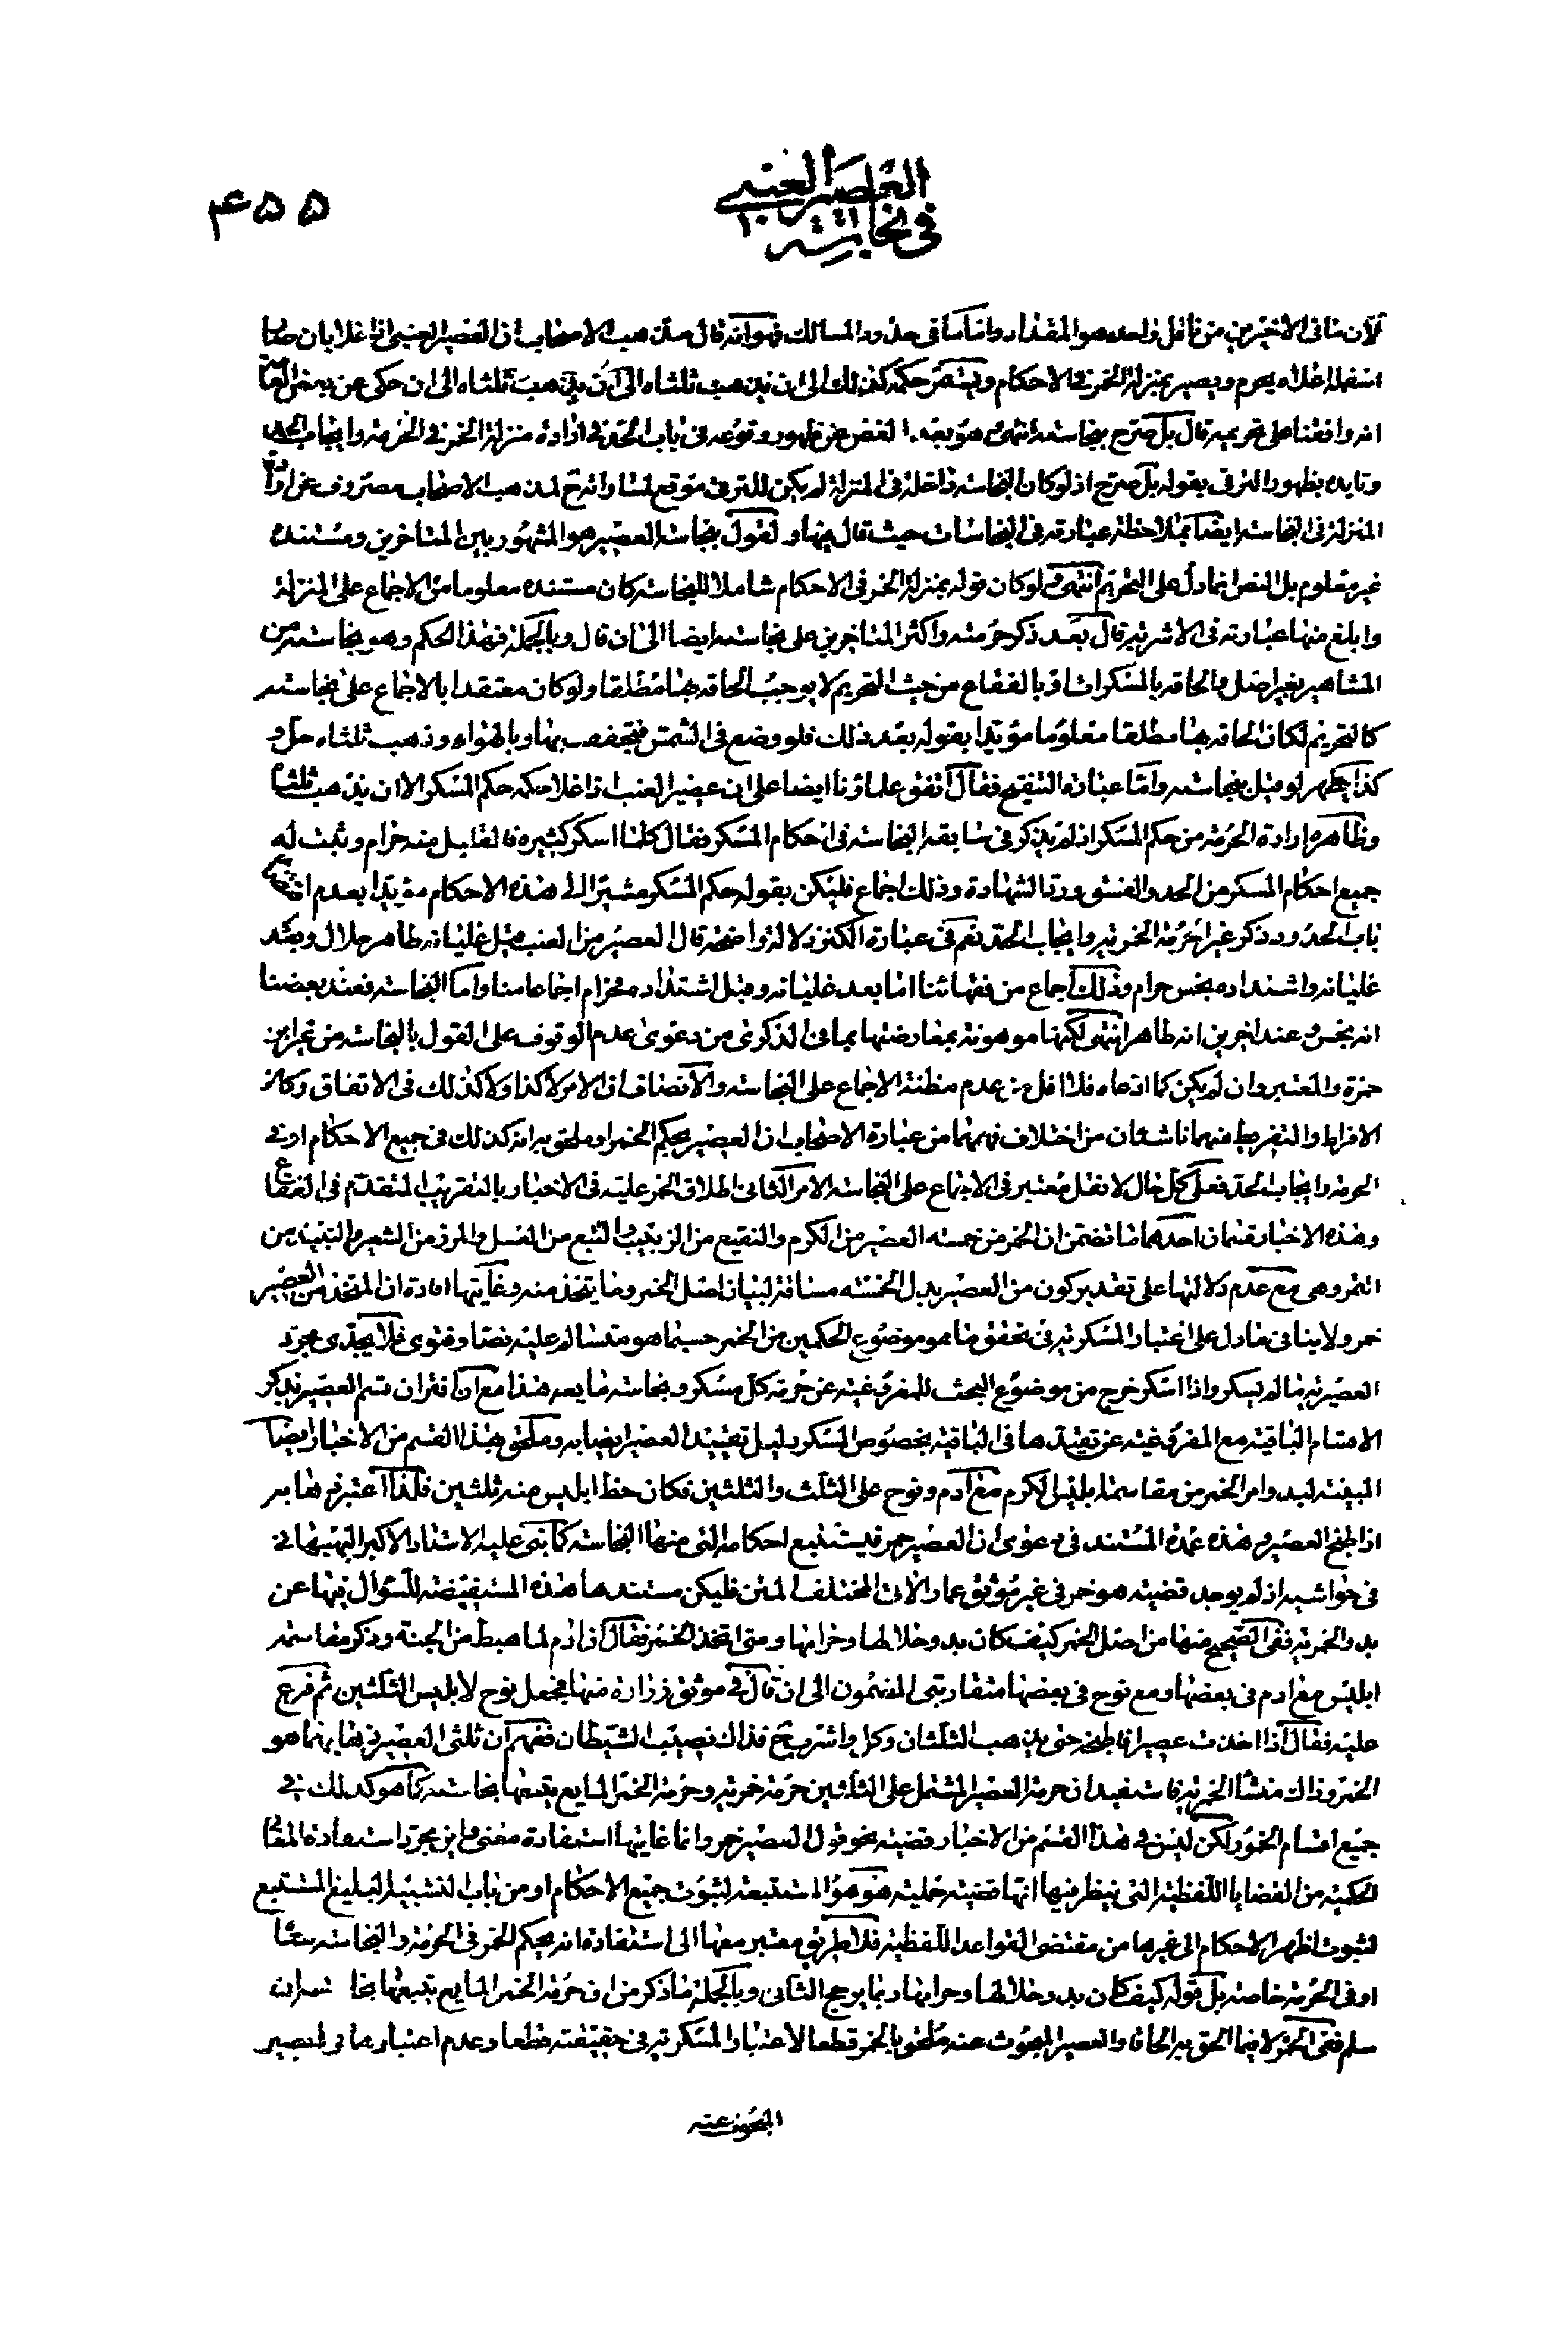 العصير العنبي
في نجاسته
۴۵۵
لان ما في الاخيرين من ناقل واحد هو المقداد واما ما في حدود المسالك فهو انه قال مذهب الاصحاب ان العصير العنبي اذا غلا بان صار
اسفله اعلاه يحرم ويصير بمنزلة الخمر في الاحكام ويستمر حكمه كذلك الى ان يذهب ثلثاه الى ان يذهب ثلثاه الى ان حكى عن بعض العامة
انه وافقنا على تحريمه قال بل صرح بنجاسته انتهى وهو بعد الغض عن ظهور وقوعه في باب الحد في ارادة منزلة الخمر في الحرمة وايجاب الحد
وتايده بظهور الترقي بقوله بل صرح اذ لو كان النجاسة داخلة في المنزلة لم يكن للترقي موقع لمساواته ح لمذهب الاصحاب مصروف عن ارادة
المنزلة في النجاسة ايضا بملاحظة عبارته في النجاسات حيث قال فيها والقول بنجاسة العصير هو المشهور بين المتاخرين ومستنده
غير معلوم بل النص انما دل على التحريم انتهى ولو كان قوله بمنزلة الخمر في الاحكام شاملا للنجاسة كان مستنده معلوما من الاجماع على المنزلة
وابلغ منها عبارته في الاشربة قال بعد ذكر حرمته واكثر المتاخرين على نجاسته ايضا الى ان قال وبالجملة فهذا الحكم وهو نجاسته من
المشاهير بغير اصل والحاقه بالمسكرات او بالفقاع من حيث التحريم لا يوجب الحاقه بها مطلقا ولو كان معتقدا بالاجماع على نجاسته
كالتحريم لكان الحاقه بها مطلقا معلوما مؤيدا بقوله بعد ذلك فلو وضع في الشمس فتجفف بها او بالهواء وذهب ثلثاه حل و
كذا يطهر لو قيل بنجاسته واما عبارة التنقيح فقال اتفق علماؤنا ايضا على ان عصير العنب اذا غلا حكمه حكم المسكر الا ان يذهب ثلثاه
وظاهره ارادة الحرمة من حكم المسكر اذ لم يذكر في سابقه النجاسة في احكام المسكر فقال كلما اسكر كثيره فالقليل منه حرام وثبت له
جميع احكام المسكر من الحد والفسق ورد الشهادة وذلك اجماع فليكن بقوله حكم المسكر مشيرا الى هذه الاحكام مؤيدا بعدم
باب الحدود ذكر غير احرمة الخمرية وايجاب الحد نعم في عبارة الكنز دلالة واضحة قال العصير من العنب قبل غليانه طاهر حلال وبعد
غليانه واشتداده نجس حرام وذلك اجماع من فقهائنا اما بعد غليانه وقبل اشتداده فحرام اجماعا منا واما النجاسة فعند بعضنا
انه نجس وعند اخرين انه طاهر انتهى لكنها موهونة بمعارضتها بما في الذكرى من دعوى عدم الوقوف على القول بالنجاسة من غير ابن
حمزة والمعتبر وان لم يكن كما ادعاه فلا اقل من عدم مظنة الاجماع على النجاسة والانصاف ان الامر لا كذا ولا كذلك في الاتفاق وكان
الافراط والتفريط منهما ناشئان من اختلاف فهمهما من عبارة الاصحاب ان العصير بحكم الخمر او ملحق به انه كذلك في جميع الاحكام او في
الحرمة وايجاب الحد فعلى كل حال لا نقل معتبر في الاجماع على النجاسة الامر الثاني اطلاق الخمر عليه في الاخبار بالتقريب المتقدم في الفقاع
وهذه الاخبار قسمان احدهما ما تضمن ان الخمر من خمسة العصير من الكرم والنقيع من الزبيب والبتع من العسل والمزر من الشعير والنبيذ من
التمر وهي مع عدم دلالتها على تقدير كون من العصير بدل الخمسة مسافة لبيان اصل الخمر وما يتخذ منه وغايتها افادة ان المتخذ من العصير
خمر ولا ينافي ما دل على اعتبار المسكرية في تحقق ما هو موضوع الحكمين من الخمر حسبما هو متسالم عليه نصا وفتوى فلا يجدى مجرد
العصيرية ما لم يسكر واذا اسكر خرج من موضوع البحث للمفروغية عن حرمة كل مسكر ونجاسة مايعه هذا مع ان اقتران قسم العصير بذكر
الاقسام الباقية مع المفروغية عن تقييدها في الباقية بخصوص المسكر دليل تقييد العصير ايضا به وملحق بهذا القسم من الاخبار ايضا
المبينة لبدو امر الخمر من مقاسمة ابليس الكرم مع آدم ونوح على الثلث والثلثين فكان حظ ابليس منه ثلثين فلذا اعتبر ذهابه
اذا طبخ العصير وهذه عمدة المستند في دعوى ان العصير خمر فيستتبع احكامه التي منها النجاسة كما بنى عليه الاستاد الاكبر البهبهاني
في حواشيه اذ لم يوجد قضية هو خمر في غير موثق عمار الاتي المختلف المتن فليكن مستندها هذه المستفيضة للسؤال فيها عن
بدو الخمرية ففي الصحيح منها من اصل الخمر كيف كان بدو حلالها وحرامها ومتى اتخذ الخمر فقال ان آدم لما هبط من الجنة وذكر مقاسمة
ابليس مع ادم في بعضها ومع نوح في بعضها متقاربتي المضمون الى ان قال في موثق زرارة منها فجعل نوح لابليس الثلثين ثم فرع
عليه فقال اذا اخذت عصيرا فاطبخه حتى يذهب الثلثان وكل واشرب ح فذاك نصيب الشيطان ففهم ان ثلثي العصير ذهابهما هو
الخمر وذاك منشأ الخمرية فاستفيد ان حرمة العصير المشتمل على الثلثين حرمة خمرية وحرمة الخمر المايع يتبعها نجاسته كما هو كذلك في
جميع اقسام الخمور لكن ليس في هذا القسم من الاخبار قضية نحو قول العصير خمر وانما غايتها استفادة معنى واين مجرد استفادة المعاني
الحكمية من القضايا اللفظية التي ينظر فيها انها قضية حملية هو هو المستتبعة لثبوت جميع الاحكام او من باب التشبيه البليغ المستتبع
لثبوت اظهر الاحكام الى غيرها من مقتضى القواعد اللفظية فلا طريق معتبر معها الى استفادة انه بحكم الخمر في الحرمة والنجاسة معا
او في الحرمة خاصة بل قوله كيف كان بدو حلالها وحرامها ربما يرجح الثاني وبالجملة ما ذكر من ان حرمة الخمر المايع يتبعها نجاسته ان
سلم ففي الخمر لا فيما الحق به الحاقا والعصير المبحوث عنه ملحق بالخمر قطعا لاعتبار المسكرية في حقيقته قطعا وعدم اعتبارها في العصير
المبحوث عنه